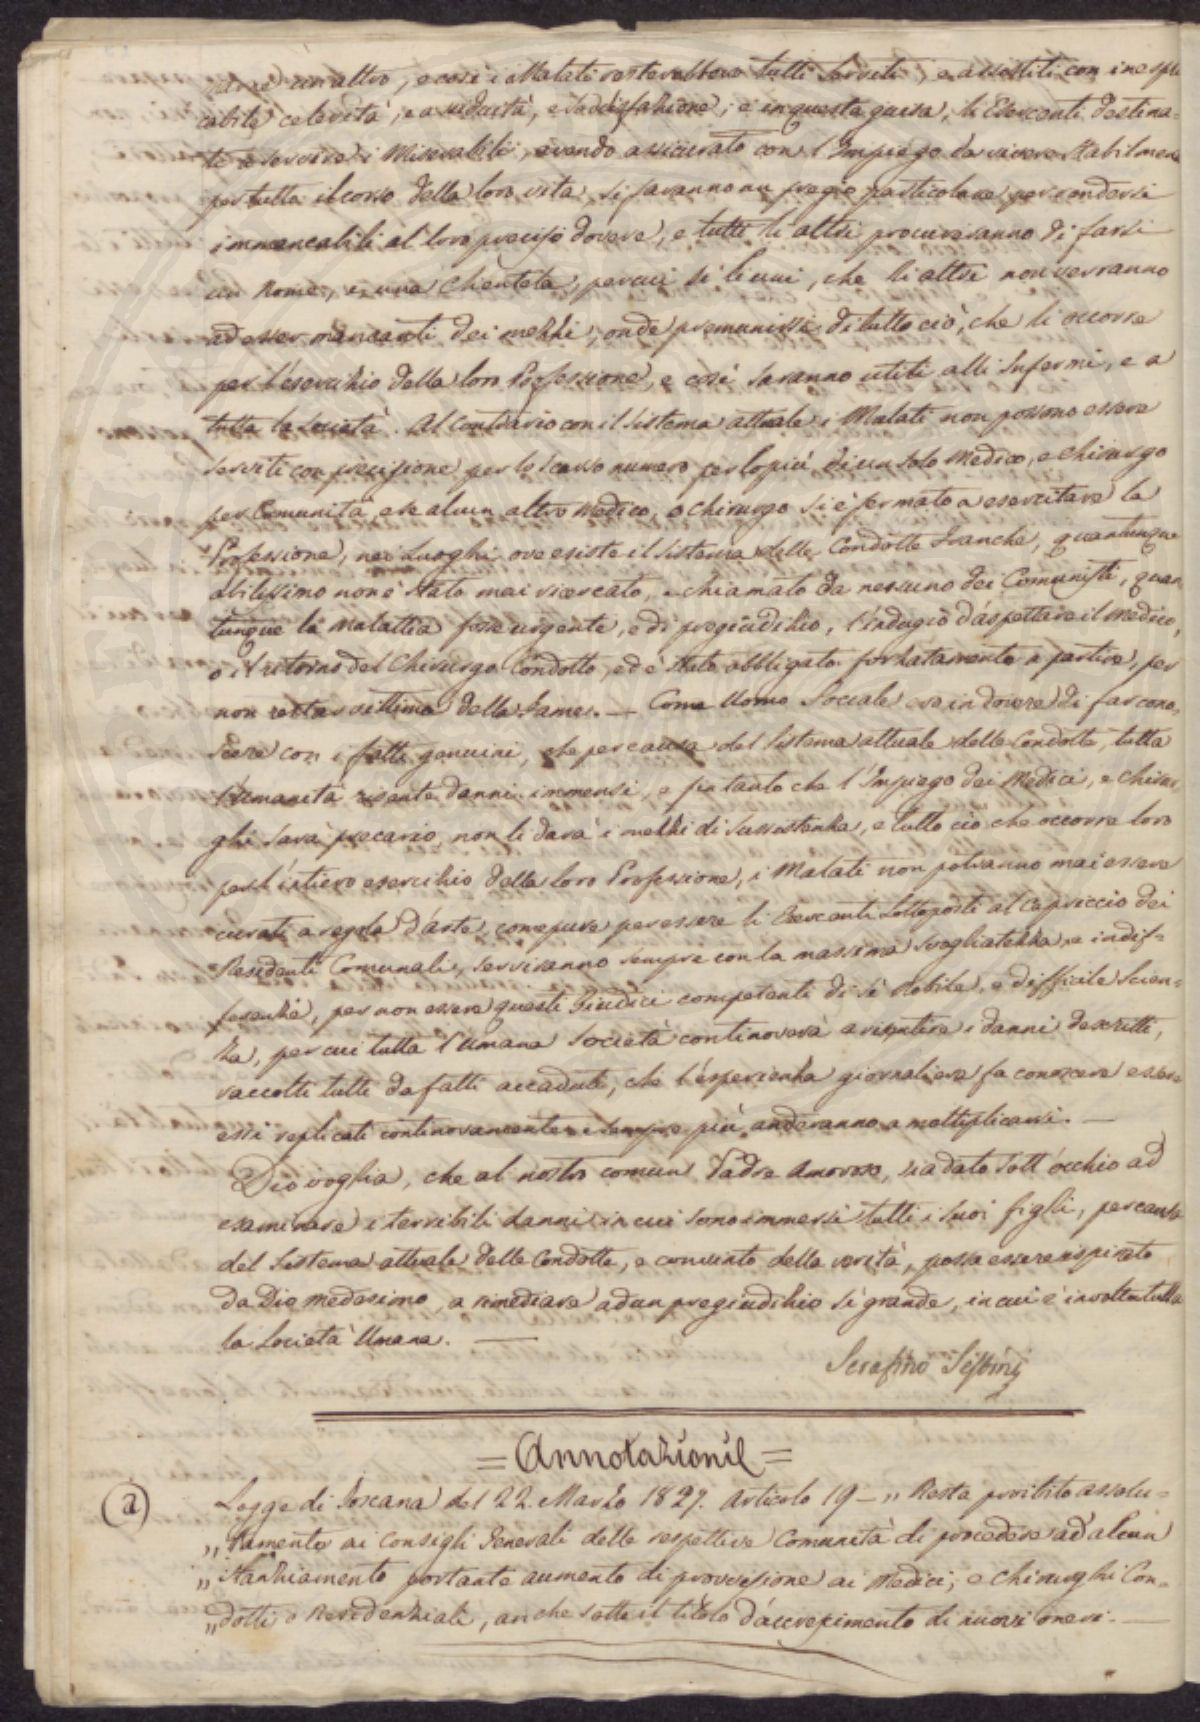 un altro, e così i Malati resterebbero tutti serviti, e assistiti con inespli
cabile celerità, e assiduità, e sodisfazione; e in questa guisa, li Esercenti destina-
ti a servire i Miserabili, avendo assicurato con l'Impiego da vivere stabilmen
per tutto il corso della loro vita, si faranno un pregio particolare per rendersi
immancabili al loro preciso dovere, e tutti li altri procureranno di farsi
un Nome, e una Clientela, per cui sì li uni, che li altri non verranno
ad esser mancanti dei mezzi, onde premunirsi di tutto ciò, che li occorre
per l'esercizio della loro Professione, e così saranno utili alli Infermi, e a
tutta la Società. Al Contrario con il sistema attuale i Malati non possono essere
serviti con precisione per lo scarso numero per lo più di un solo Medico, e Chirurgo
per Comunità, e se alcun altro Medico, o Chirurgo si è fermato a esercitare la
Professione, nei Luoghi ove esiste il sistema delle Condotte Franche, quantunque
abilissimo non è stato mai ricercato, e chiamato da nessuno dei Comunisti, quan
tunque la Malattia fosse urgente, e di pregiudizio, l'indugio d'aspettare il Medico,
o il ritorno del Chirurgo Condotto, ed è stato obbligato forzatamente a partire, per
non restar vittima della Fame. — Come Uomo Sociale era in dovere di far cono,
scere con i fatti genuini, che per causa del Sistema attuale delle Condotte, tutta
l'umanità risente danni immensi, e fin tanto che l'Impiego dei Medici, e Chirur,
ghi sarà precario, non li darà i mezzi di sussistenza, e tutto ciò che occorre loro
per l'intiero esercizio della loro Professione, i Malati non potranno mai essere
curati a regola d'arte, come pure per essere li Esercenti sottoposti al Capriccio dei
Residenti Comunali, serviranno sempre con la massima svogliatezza, e indif=
ferenza, per non essere questi Giudici competenti di sì Nobile, e difficile Scien=
za, per cui tutta l'Umana Società continoverà a risentire i danni descritti,
raccolti tutti da fatti accaduti, che l'esperienza giornaliera fa conoscere esser
essi replicati continovamente e sempre più anderanno a moltiplicarsi. —
Dio voglia, che al nostro comun Padre Amoroso, sia dato sott'occhio ad
esaminare i terribili danni in cui sono immersi tutti i suoi figli, per causa
del Sistema attuale delle Condotte, e convinto della verità, possa essere inspirato
da Dio medesimo, a rimediare ad un pregiudizio sì grande, in cui è involta tutta
la Società Umana. —
Serafino
= Annotazioni =
(a) Legge di Toscana del 22. Marzo 1827. Articolo 19 — „ Resta proibito assolu=
„ tamente ai Consigli Generali delle respettive Comunità di procedere ad alcun
„ stanziamento portante aumento di provvisione ai Medici, e Chirurghi Con=
„ dotti o Residenziali, anche sotto il titolo d'accrescimento di nuovi oneri. —